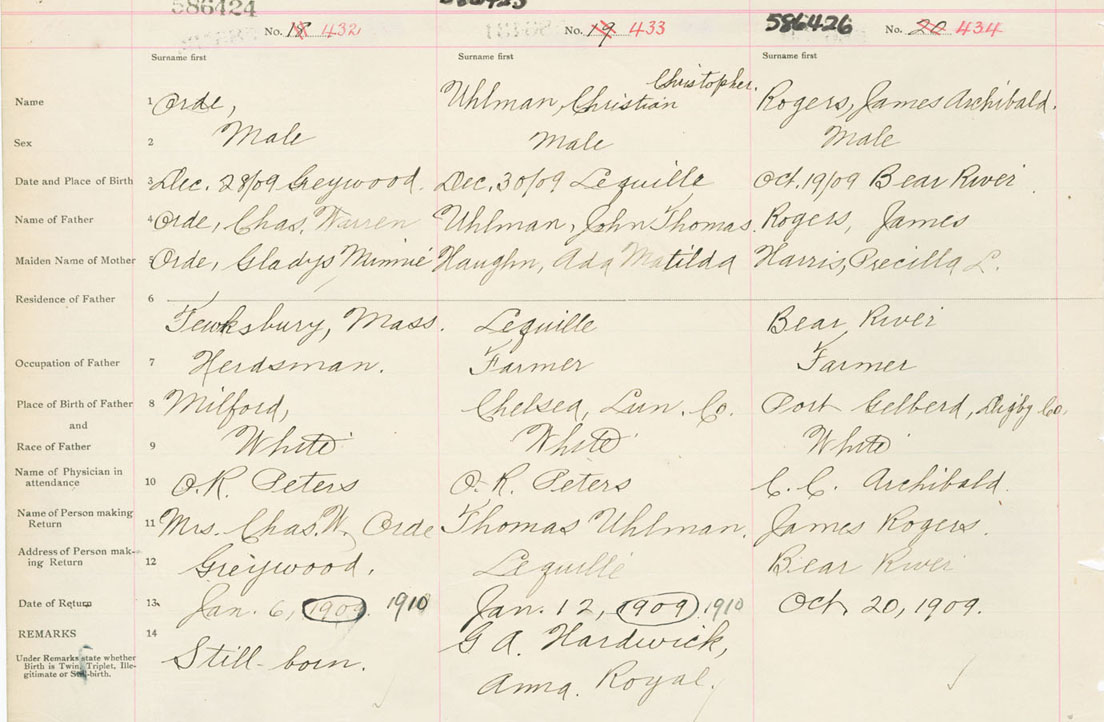 586424
586425
586426
No. 18 432
No. 19 433
No. 20 434
Surname first Surname first Surname first
Christopher.
Name 1 Orde, Uhlman, Christian Rogers, James Archibald.
Sex 2 Male Male Male
Date and Place of Birth 3 Dec. 28/09 Greywood. Dec. 30/09 Lequille Oct. 19/09 Bear River.
Name of Father 4 Orde, Chas. Warren Uhlman, John Thomas. Rogers, James
Maiden Name of Mother 5 Orde, Gladys Minnie Haughn, Ada Matilda Harris, Precilla L.
Residence of Father 6
Tewksbury, Mass. Lequille Bear River
Occupation of Father 7 Herdsman. Farmer Farmer
Place of Birth of Father 8 Milford, Chelsea, Lun. Co. Port Gelberd, Digby Co.
and
Race of Father 9 White White White
Name of Physician in
attendance 10 O.R. Peters O.R. Peters C.C. Archibald.
Name of Person making
Return 11 Mrs. Chas. W. Orde Thomas Uhlman. James Rogers.
Address of Person mak-
ing Return 12 Greywood. Lequille Bear River
Date of Return 13 Jan. 6, 1909 1910 Jan. 12, 1909 1910 Oct. 20, 1909.
REMARKS 14 Still-born. G A. Hardwick,
Anna. Royal.
Under Remarks state whether
Birth is Twin, Triplet, Ille-
gitimate or Still-birth.